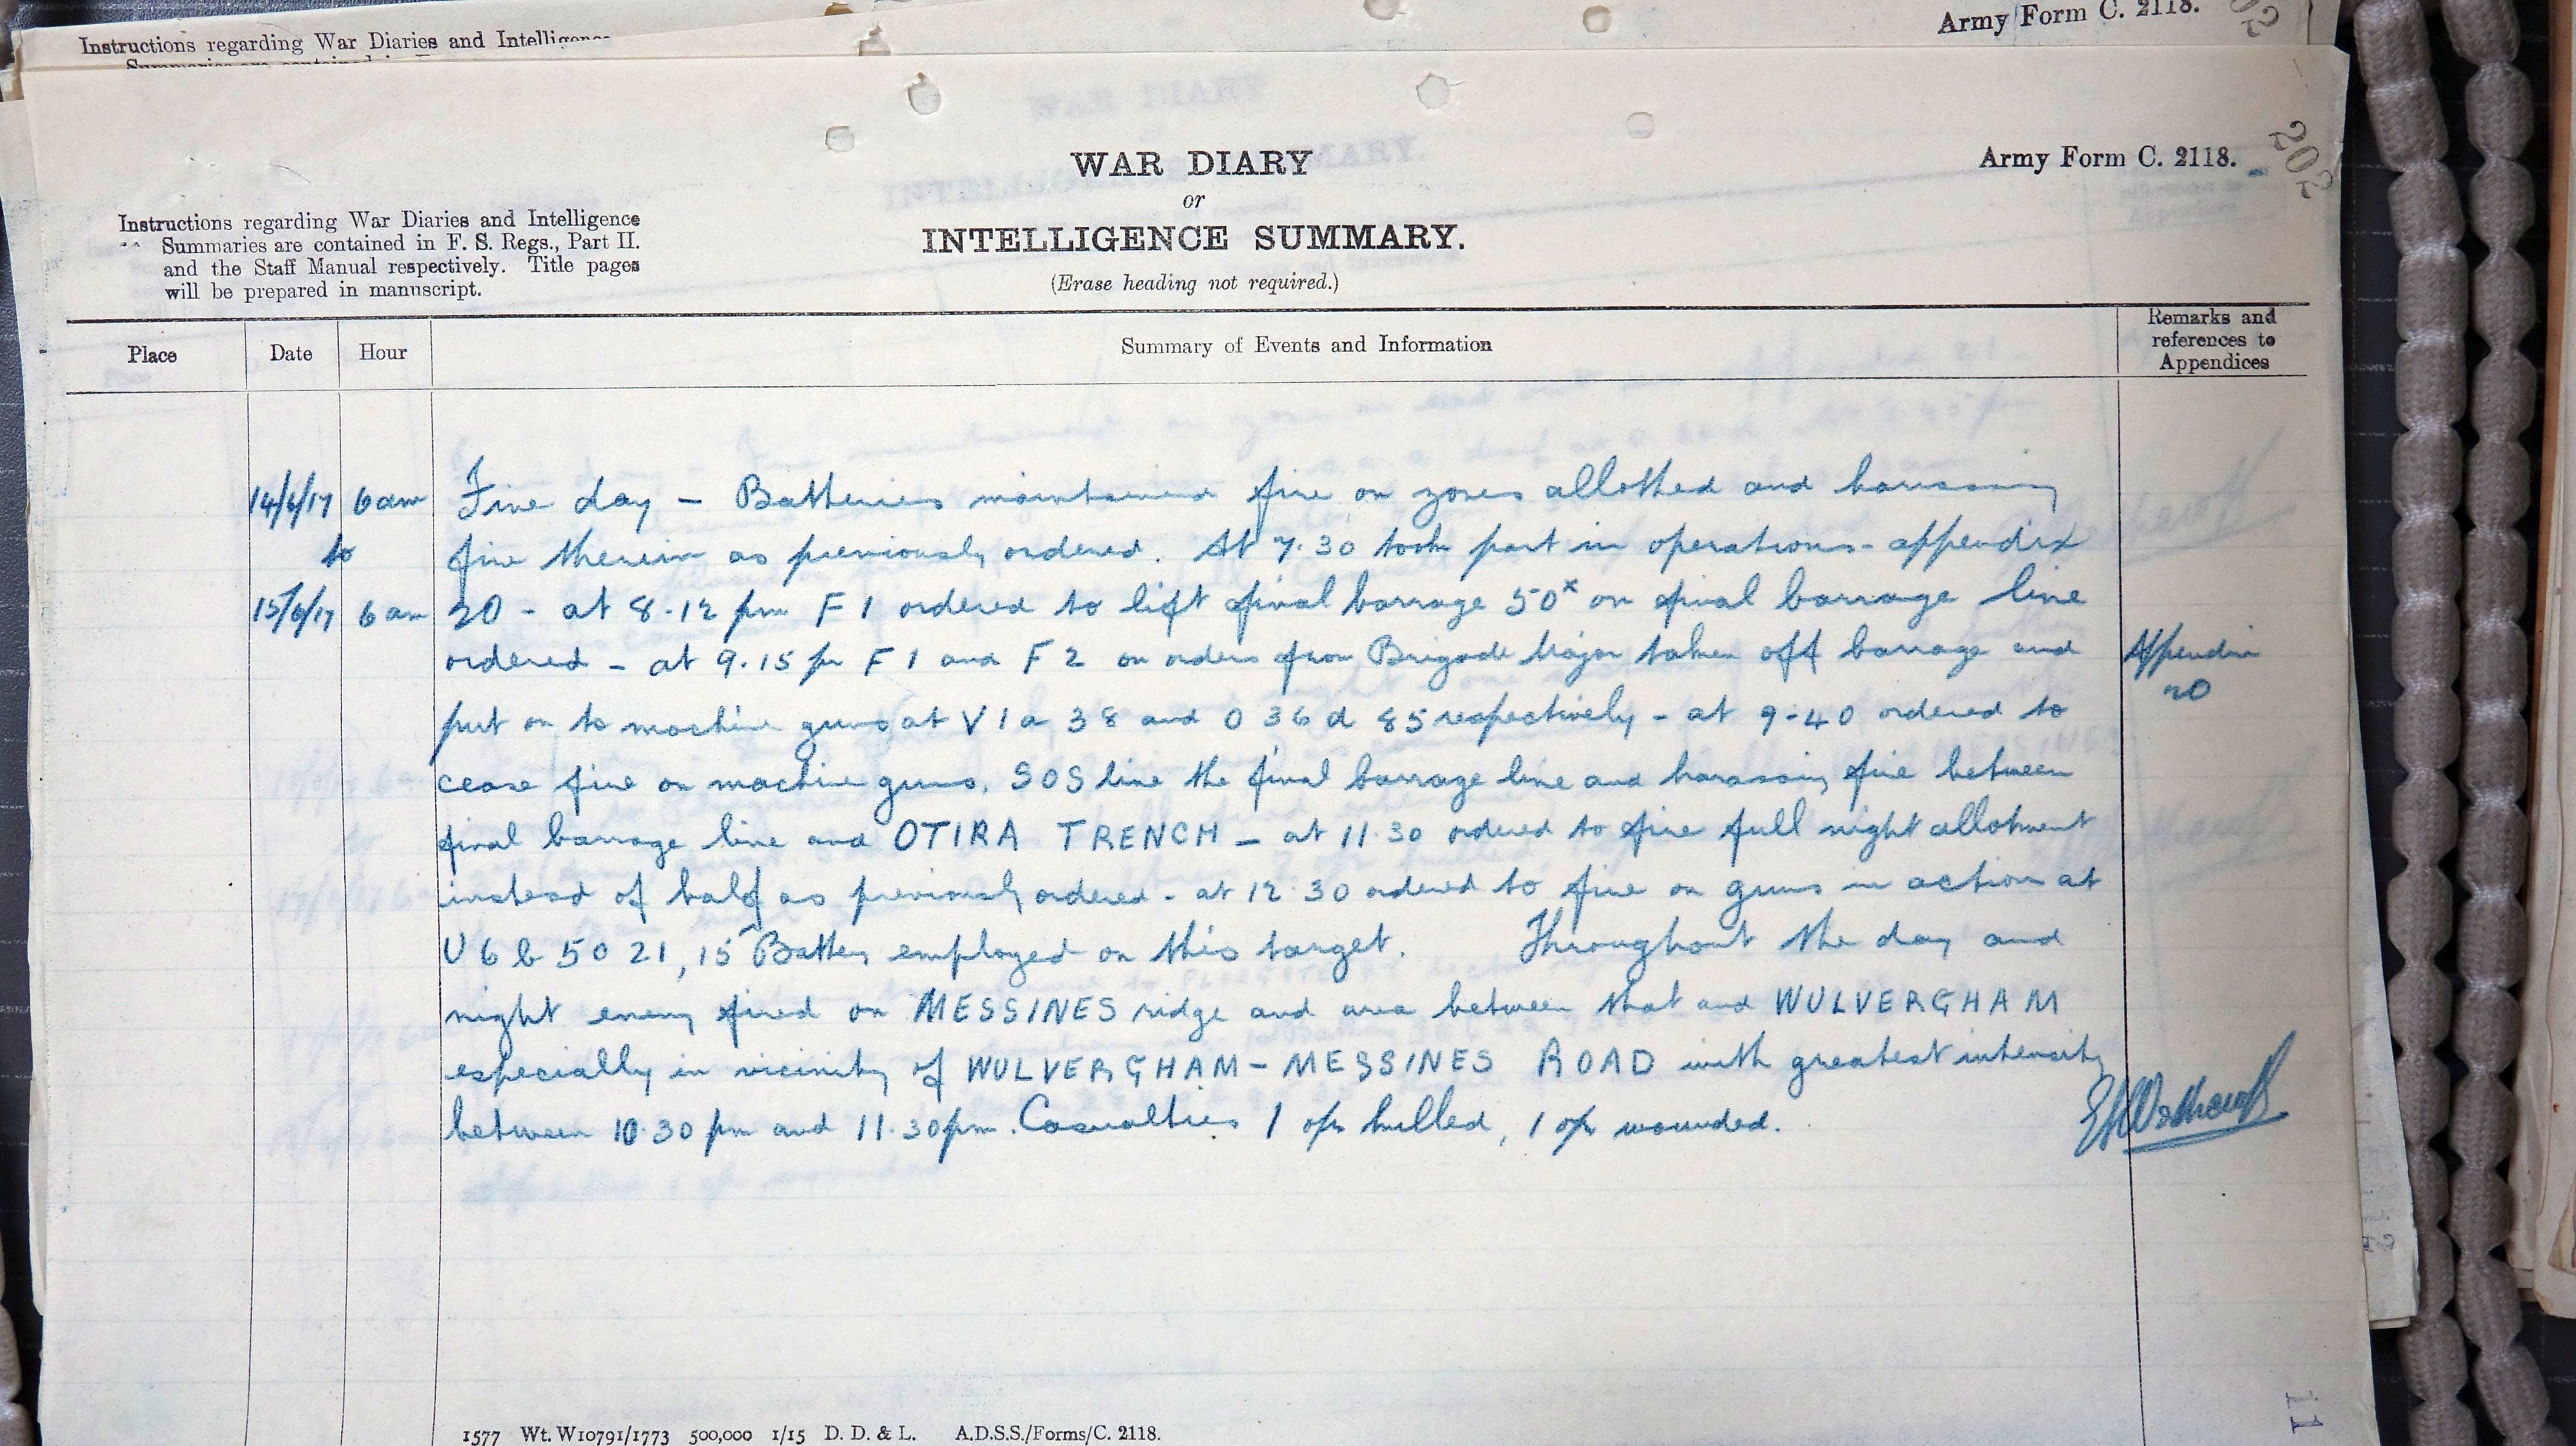 Instructions regarding War Diaries and
Army Form C. 2118.
202
WAR DIARY
or
INTELLIGENCE SUMMARY.
(Erase heading not required.)
Army Form C. 2118.
Instructions regarding War Diaries and Intelligence
Summaries are contained in F. S. Regs., Part II.
and the Staff Manual respectively. Title pages
will be prepared in manuscript.
Place Date Hour Summary of Events and Information Remarks and
references to
Appendices
14/6/17 6 am Fine day - Batteries maintained fire on zones allotted and harassing
to fire therein as previously ordered. At 7.30 took part in operations - appendix
15/6/17 6 am 20 - at 8.12 pm F 1 ordered to lift final barrage 50x on final barrage line
ordered - at 9.15 pm F 1 and F 2 on orders from Brigade Major taken off barrage and
Appendix
20
put on to machine guns at V 1 a 38 and O 36 d 85 respectively - at 9.40 ordered to
cease fire on machine guns, SOS line the final barrage line and harassing fire between
final barrage line and OTIRA TRENCH - at 11.30 ordered to fire full night allotment
instead of half as previously ordered - at 12.30 ordered to fire on guns in action at
U 6 b 50 21, 15 Battery employed on this target. Throughout the day and
night enemy fired on MESSINES ridge and area between that and WULVERGHAM
especially in vicinity of WULVERGHAM - MESSINES ROAD with greatest intensity
between 10.30 pm and 11.30 pm. Casualties 1 o/r killed, 1 o/r wounded.
1577 Wt. W10791/1773 500,000 1/15 D. D. & L. A.D.S.S./Forms/C. 2118.
11